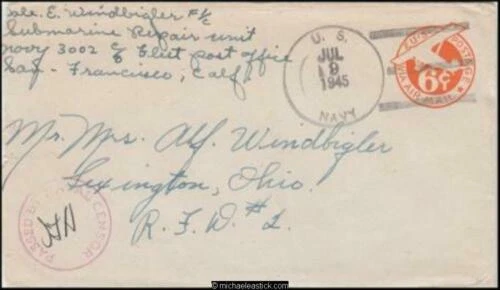 Dale E. Windbigler F 1/c
Submarine Repair unit
Navy 3002 % Fleet post office
San Francisco, Calif.
U. S.
JUL
9
1945
NAVY
U.S. POSTAGE
6¢
VIA AIR MAIL
Mr. Mrs. Alf Windbigler
Lexington, Ohio.
R. F. D. #1.
PASSED BY NAVAL CENSOR
© michaeleastick.com